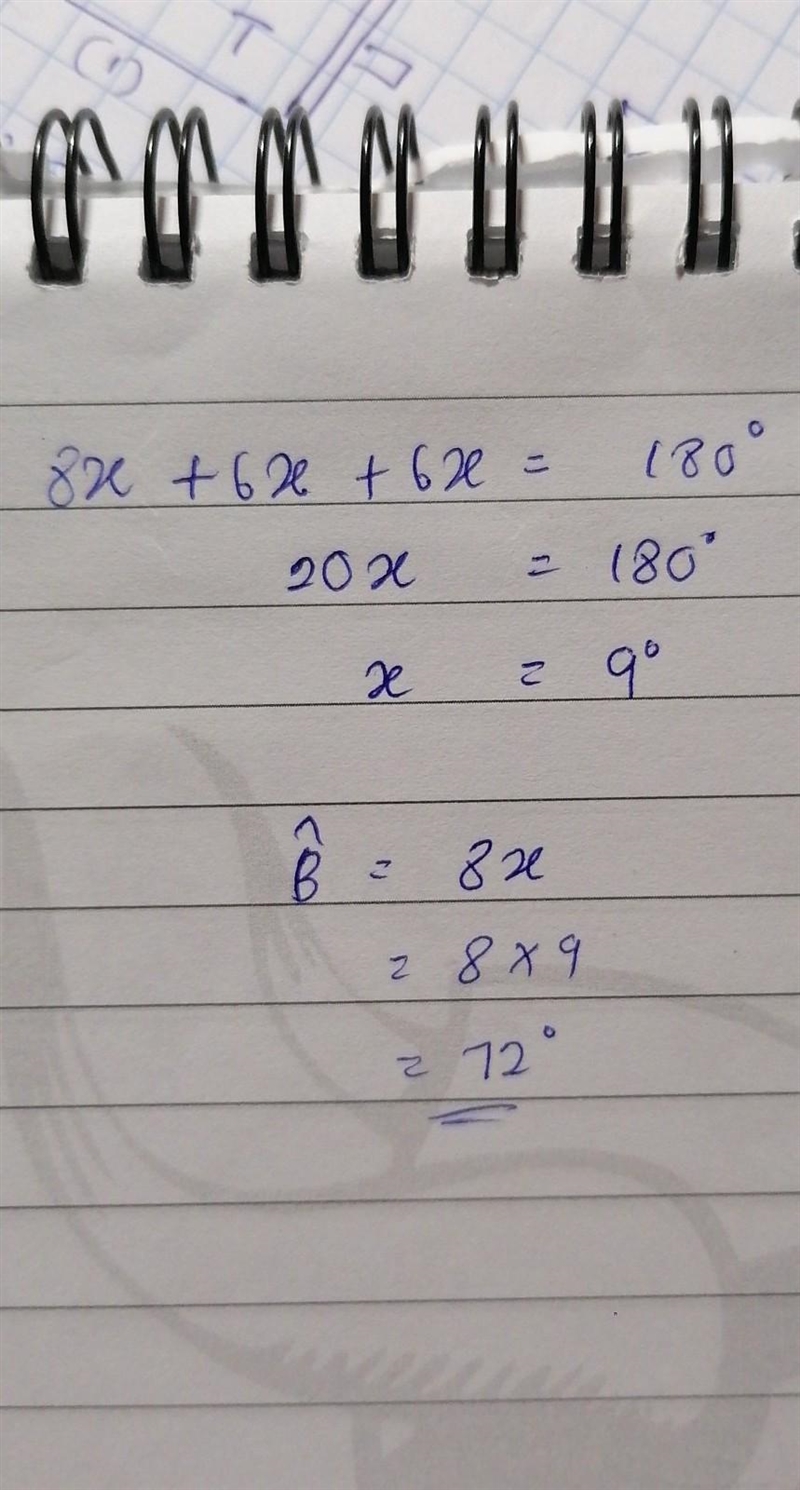 (1) T
8x + 6x + 6x = 180°
20x = 180°
x = 9°
B̂ = 8x
= 8 × 9
= 72°